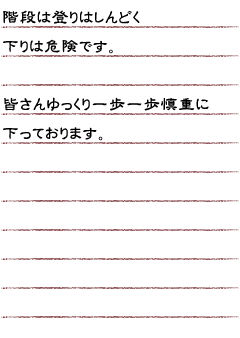 階段は登りはしんどく
下りは危険です。
皆さんゆっくり一歩一歩慎重に
下っております。